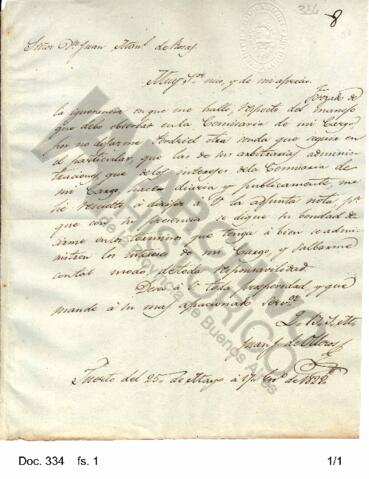 8
Señor Dn. Juan Manl. de Rosas
Muy Sr. mio, y de mi aprecio.
la ignorancia en que me hallo, respecto del manejo
que debo observar en la Comisaria de mi Cargo
por no
el particular, que las de mis arbitrarias adminis-
traciones que de los intereses de la Comisaria de
mi Cargo hacia diaria y publicamente, me
hé resuelto á dirijir á V. la adjunta nota pa.
que con su presencia se digne su bondad de-
cirme en los terminos que tenga á bien se admi-
nistren los intereses de mi Cargo, y salbarme
con tal modo de toda responsavilidad.
Deseo á V. toda prosperidad, y que
mande á su mas apacionado
Juan J. de Olleros
Fuerte del 25 de Mayo á
Doc. 334 fs. 1 1/1